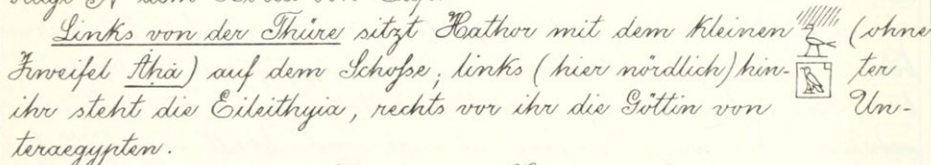 Links von der Thüre sitzt Hathor mit dem kleinen (ohne
Zweifel Ahà) auf dem Schoße, links (hier nördlich) hin- ter
ihr steht die Eileithyia, rechts vor ihr die Göttin von Un-
teraegypten.